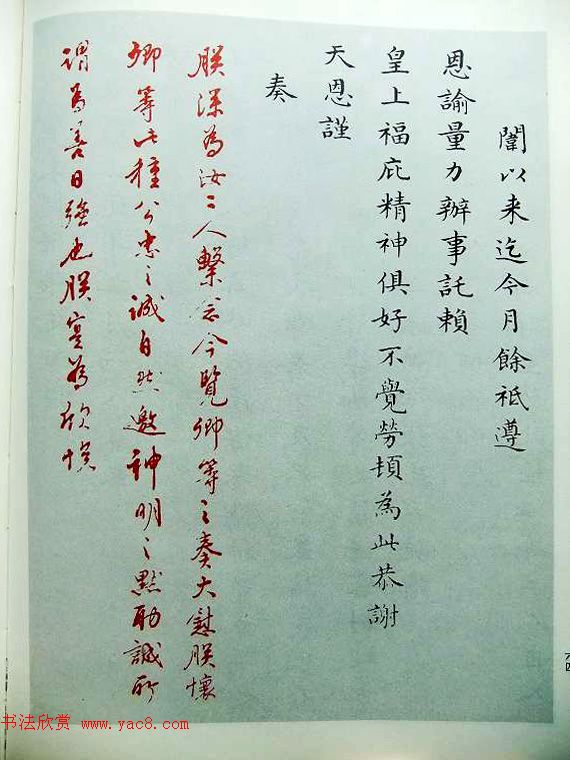 闈以来迄今月餘祗遵
恩諭量力辦事託賴
皇上福庇精神俱好不覺勞頓為此恭謝
天恩謹
奏
朕深為汝二人繫念今覽卿等之奏大慰朕懷
卿等此種公忠之誠自然邀神明之默助誠所
謂為善日強也朕實為欣悅
书法欣赏 www.yac8.com